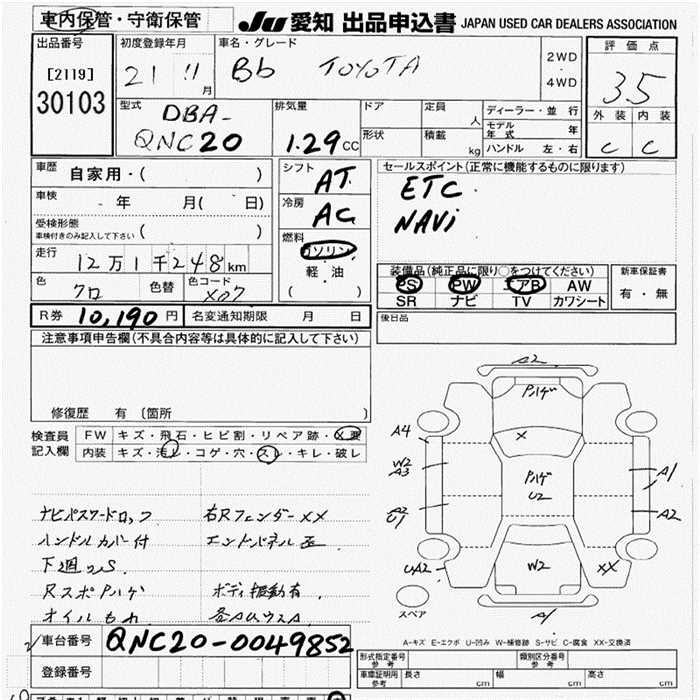 車内保管・守衛保管
JU 愛知 出品申込書 JAPAN USED CAR DEALERS ASSOCIATION
出品番号
[2119]
30103
初度登録年月
21 11月
車名・グレード
Bb TOYOTA
2WD
・
4WD
評価点
3.5
外装 内装
C C
型式
DBA-
QNC20
排気量
1.29cc
ドア
形状
定員 人
積載 kg
ディーラー・並行
モデル年式 年
ハンドル 左・右
車歴
自家用・( )
車検 年 月( 日)
受検形態
車検付きのみ記入して下さい ( )
走行
12万1千248km
色
クロ
色替
色コード
X07
シフト
AT
冷房
AC
燃料
ガソリン
・
軽・油
( )
セールスポイント(正常に機能するものに限ります)
ETC
NAVi
装備品(純正品に限り○をつけてください)
PS PW エアB AW
SR ナビ TV カワシート
新車保証書
有・無
R券 10,190円 名変通知期限 月 日
後日品
注意事項申告欄(不具合内容等は具体的に記入して下さい)
修復歴 有 〔箇所 〕
検査員
記入欄
FW キズ・飛石・ヒビ割・リペア跡・X要
内装 キズ・汚レ・コゲ・穴・スレ・キレ・破レ
ナビパスワードロック 右Rフェンダー XX
ハンドルカバー付 エンドパネル歪
下廻りS
RスポPハゲ ボディ振動有
オイルもれ 各AUWSA
A2
Pハゲ
X
A4
W2
A3
Pハゲ
U2
A1
A2
U1
A2
UA2
W2
XX
スペア
A1
A-キズ E-エクボ U-凹み W-補修跡 S-サビ C-腐食 XX-交換済
車台番号 QNC20-0049852
登録番号
型式指定番号
参考
類別区分番号
参考
車庫証明用
参考
長さ cm 幅 cm 高さ cm